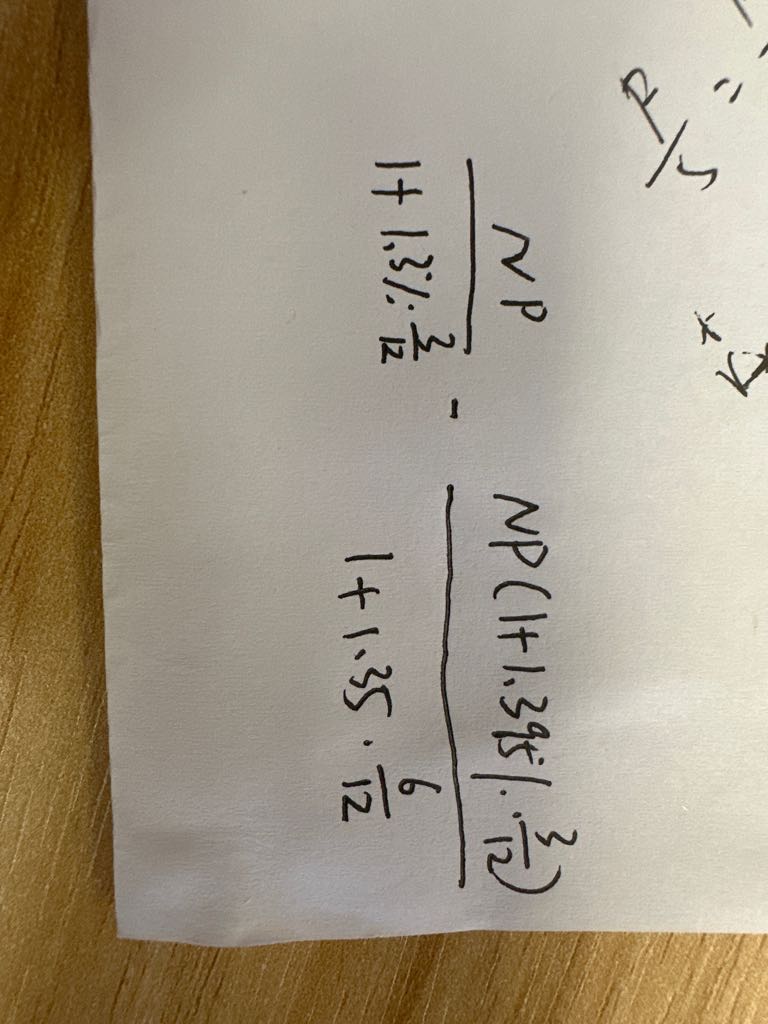 R/S =
NP / (1 + 1.3% · 3/12) - NP(1 + 1.395% · 3/12) / (1 + 1.35 · 6/12)